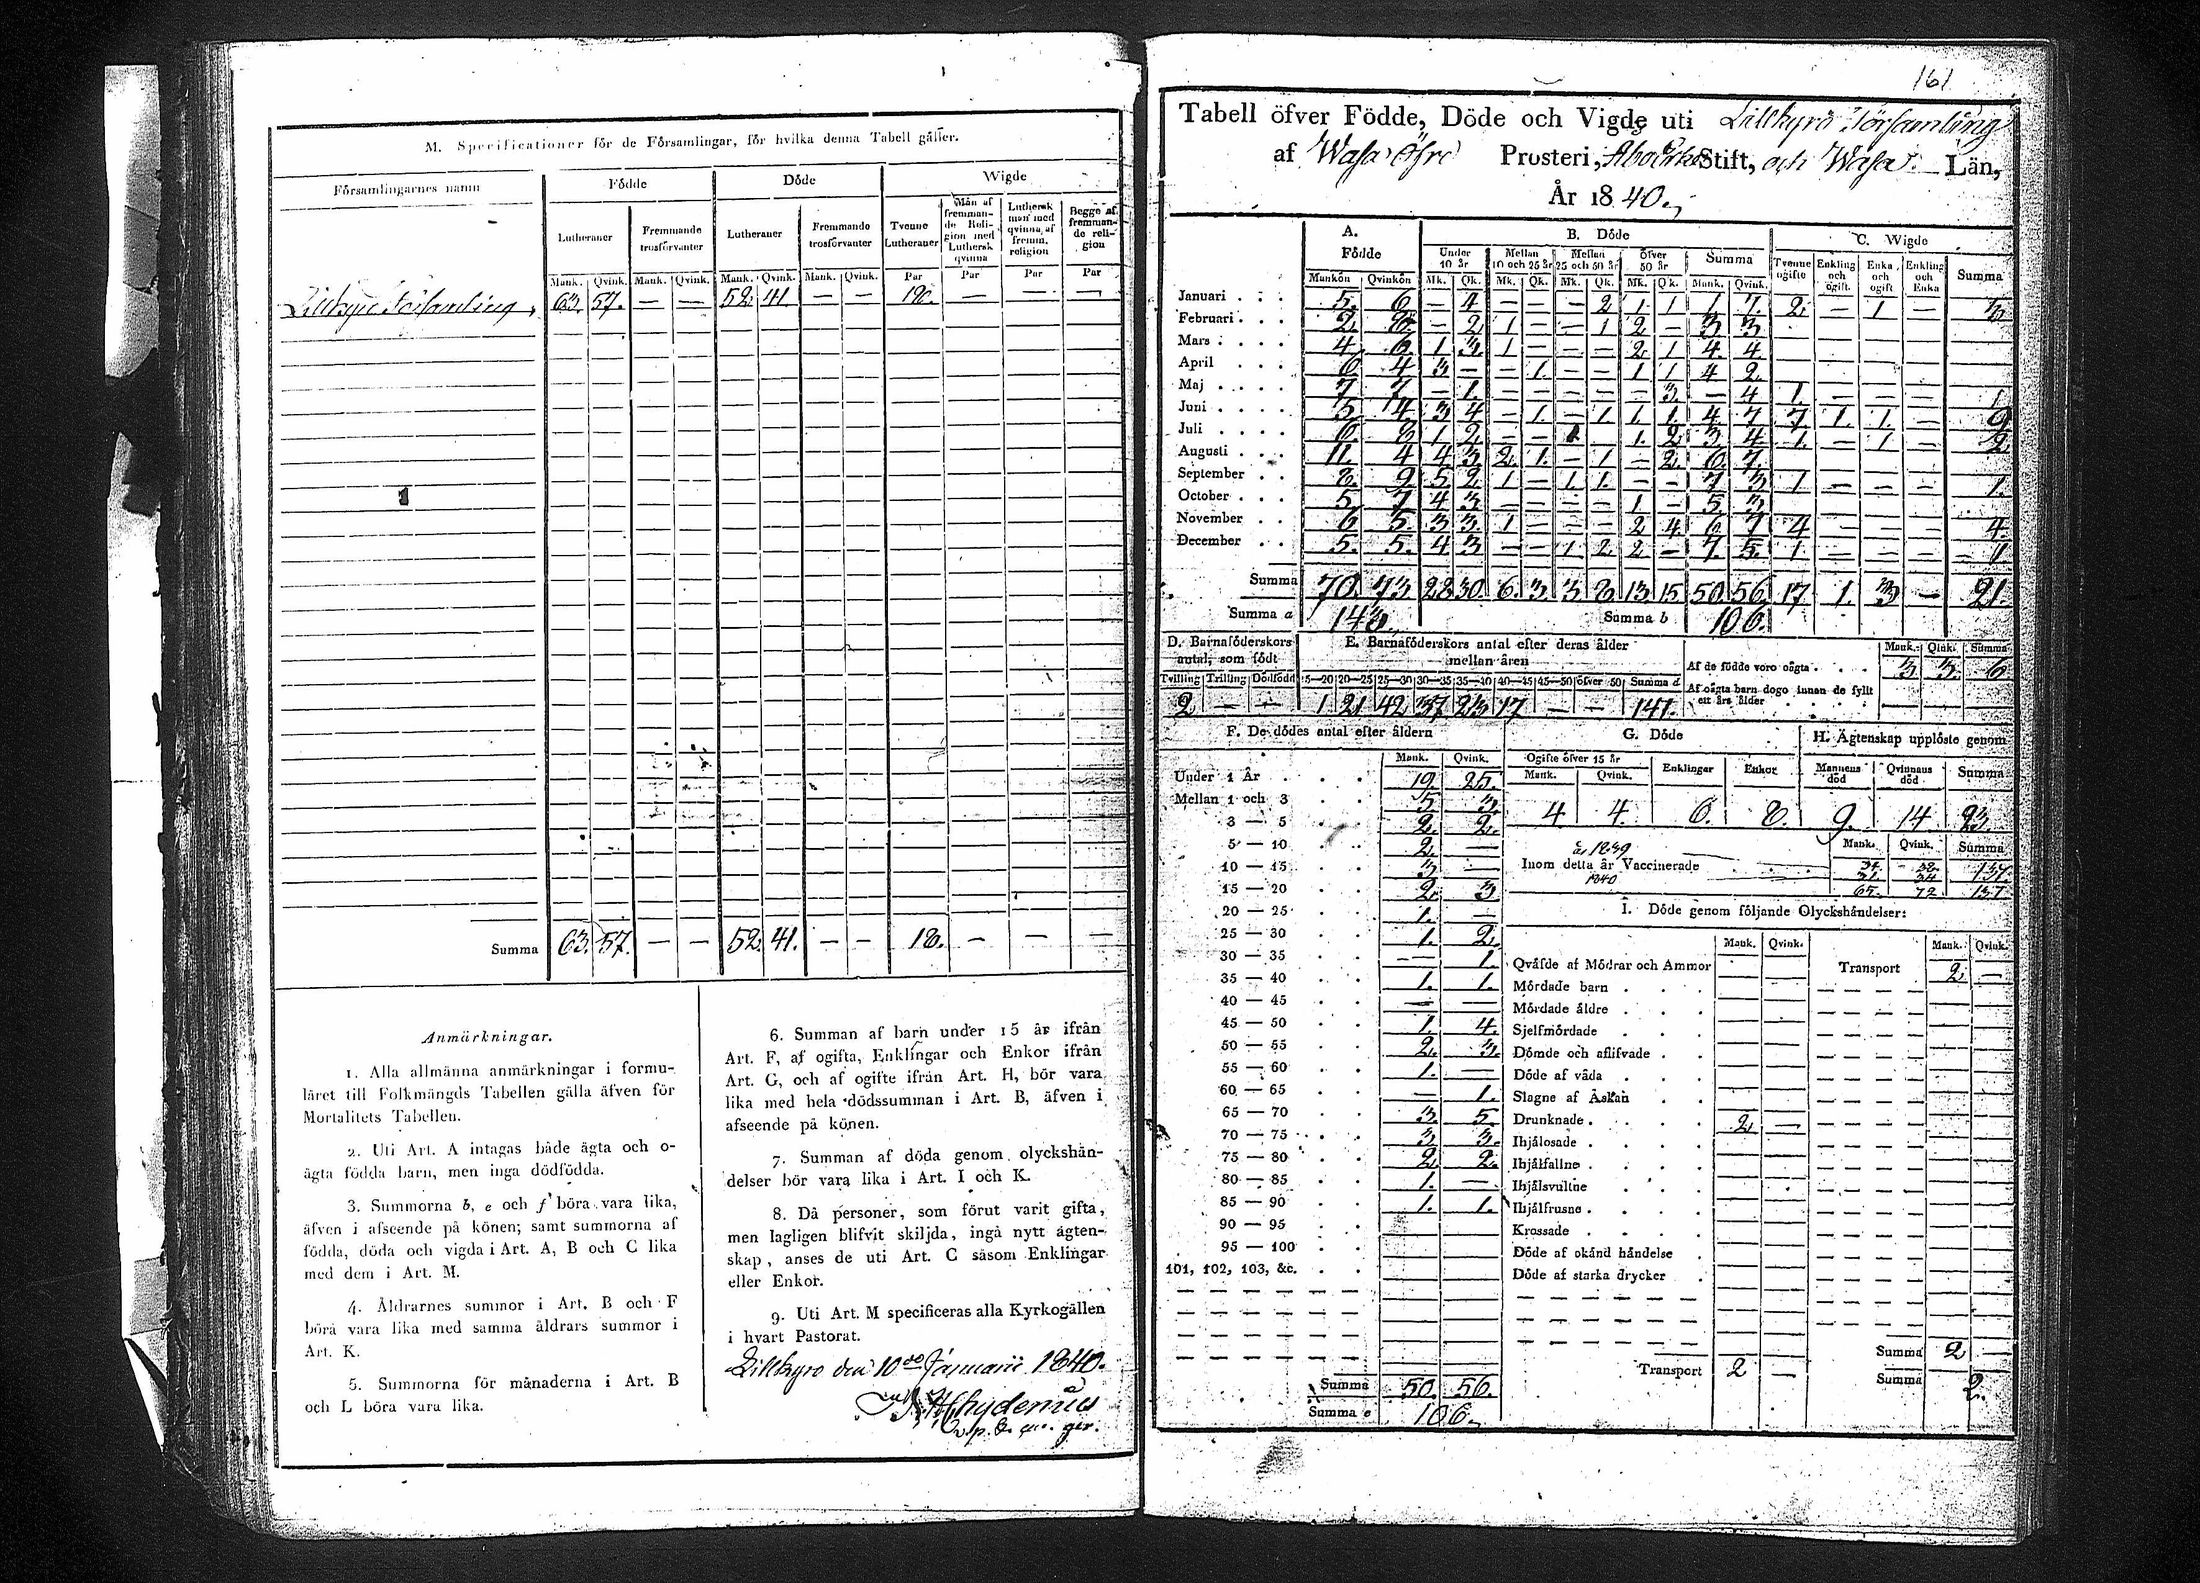 M. Specificationer för de Församlingar, för hvilka denna Tabell gäller.
Församlingarnes namn Födde Döde Wigde
Lutheraner Fremmande trosförvanter Lutheraner Fremmande trosförvanter Tvenne Lutheraner Män af fremmande Religion med Luthersk qvinna Luthersk man med qvinna af fremm. religion Begge af fremmande religion
Mank. Qvink. Mank. Qvink. Mank. Qvink. Mank. Qvink. Par Par Par Par
Lillkyro Församling, 63. 57. — — 52. 41. — — 18. — — —
Summa 63. 57. — — 52. 41. — — 18. — — —
Anmärkningar.
1. Alla allmänna anmärkningar i formu-
läret till Folkmängds Tabellen gälla äfven för
Mortalitets Tabellen.
2. Uti Art. A intagas både ägta och o-
ägta födda barn, men inga dödfödda.
3. Summorna b, e och f böra vara lika,
äfven i afseende på könen; samt summorna af
födda, döda och vigda i Art. A, B och C lika
med dem i Art. M.
4. Åldrarnes summor i Art. B och F
böra vara lika med samma åldrars summor i
Art. K.
5. Summorna för månaderna i Art. B
och L böra vara lika.
6. Summan af barn under 15 år ifrån
Art. F, af ogifta, Enklingar och Enkor ifrån
Art. G, och af ogifte ifrån Art. H, bör vara
lika med hela dödssumman i Art. B, äfven i
afseende på könen.
7. Summan af döda genom olyckshän-
delser bör vara lika i Art. I och K.
8. Då personer, som förut varit gifta,
men lagligen blifvit skiljda, ingå nytt ägten-
skap, anses de uti Art. C såsom Enklingar
eller Enkor.
9. Uti Art. M specificeras alla Kyrkogällen
i hvart Pastorat.
Lillkyro den 10de Januarii 1840.
Chydenius
161
Tabell öfver Födde, Döde och Vigde uti Lillkyro Församling
af Wasa Öfre Prosteri, Åbo Erke Stift, och Wasa Län,
År 1840.
A. Födde B. Döde C. Wigde
Under 10 år Mellan 10 och 25 år Mellan 25 och 50 år Öfver 50 år Summa Tvenne ogifte Enkling och ogift. Enka och ogift Enkling och Enka Summa
Mankön Qvinkön Mk. Qk. Mk. Qk. Mk. Qk. Mk. Qk. Mank. Qvink.
Januari 5. 6 — 4 — — — 2 1 1 1 7. 2. — 1 — 3
Februari 2 8 — 2 1 — — 1 2 — 3 3
Mars 4 6 1 3 1 — — — 2 1 4 4
April 6 4 3 — — 1. — — 1 1 4 2
Maj 7 7 — 1. — — — — — 3. — 4 1. — — — 1
Juni 5 4 3 4 — 1. — 1. 1 1. 4 7 7 1. 1. — 9
Juli 6. 8 1 2 — — 1 — 1. 2 3 4 1. — 1 — 2
Augusti 11. 4 4 3 2. 1. — 1 — 2. 6 7
September 8. 9 5 2 1 — 1 1. — — 7 3 1 — — — 1.
October 5 7 4 3 — — — — 1 — 5 3
November 6 5 3 3 1 — — — 2 4 6 7 4 — — — 4.
December 5. 5. 4 3 — — 1 2 2 — 7. 5. 1 — — — 1
Summa 70. 73. 28 30. 6. 3. 3 8 13 15 50 56. 17 1. 3 — 21.
Summa a 143. Summa b 106.
D. Barnaföderskors antal, som födt E. Barnaföderskors antal efter deras ålder mellan åren
Tvilling Trilling Dödfödd 15—20 20—25 25—30 30—35 35—40 40—45 45—50 öfver 50 Summa d
2 — — 1 21 42 37 23 17 — — 141.
Mank. Qink. Summa
Af de födde voro oägta 3 3. 6
Af oägta barn dogo innan de fyllt ett års ålder
F. De dödes antal efter åldern
Mank. Qvink.
Under 1 År 19 25.
Mellan 1 och 3 5 3.
3 — 5 2. 2.
5 — 10 2. —
10 — 15 3 —
15 — 20 2. 3
20 — 25 1. —
25 — 30 1. 2.
30 — 35 — 1.
35 — 40 1. 1.
40 — 45 — —
45 — 50 1 4.
50 — 55 2. 3.
55 — 60 1. —
60 — 65 — 1.
65 — 70 3. 5.
70 — 75 3 3.
75 — 80 2 2.
80 — 85 1. —
85 — 90 1. 1.
90 — 95
95 — 100
101, 102, 103, &c.
Summa 50. 56.
Summa e 106.
G. Döde
Ogifte öfver 15 år Enklingar Enkor
Mank. Qvink.
4. 4. 6. 8.
H. Ägtenskap upplöste genom
Mannens död Qvinnans död Summa
9. 14 23.
år 1839
Mank. Qvink. Summa
Inom detta år Vaccinerade
1840
65. 72. 137
I. Döde genom följande Olyckshändelser:
Mank. Qvink. Mank. Qvink.
Qväfde af Mödrar och Ammor Transport 2. —
Mördade barn
Mördade äldre
Sjelfmördade
Dömde och aflifvade
Döde af våda
Slagne af Åskan
Drunknade 2 —
Ihjälosade
Ihjälfallne
Ihjälsvultne
Ihjälfrusne
Krossade
Döde af okänd händelse
Döde af starka drycker
Summa 2 —
Transport 2 — Summa 2.